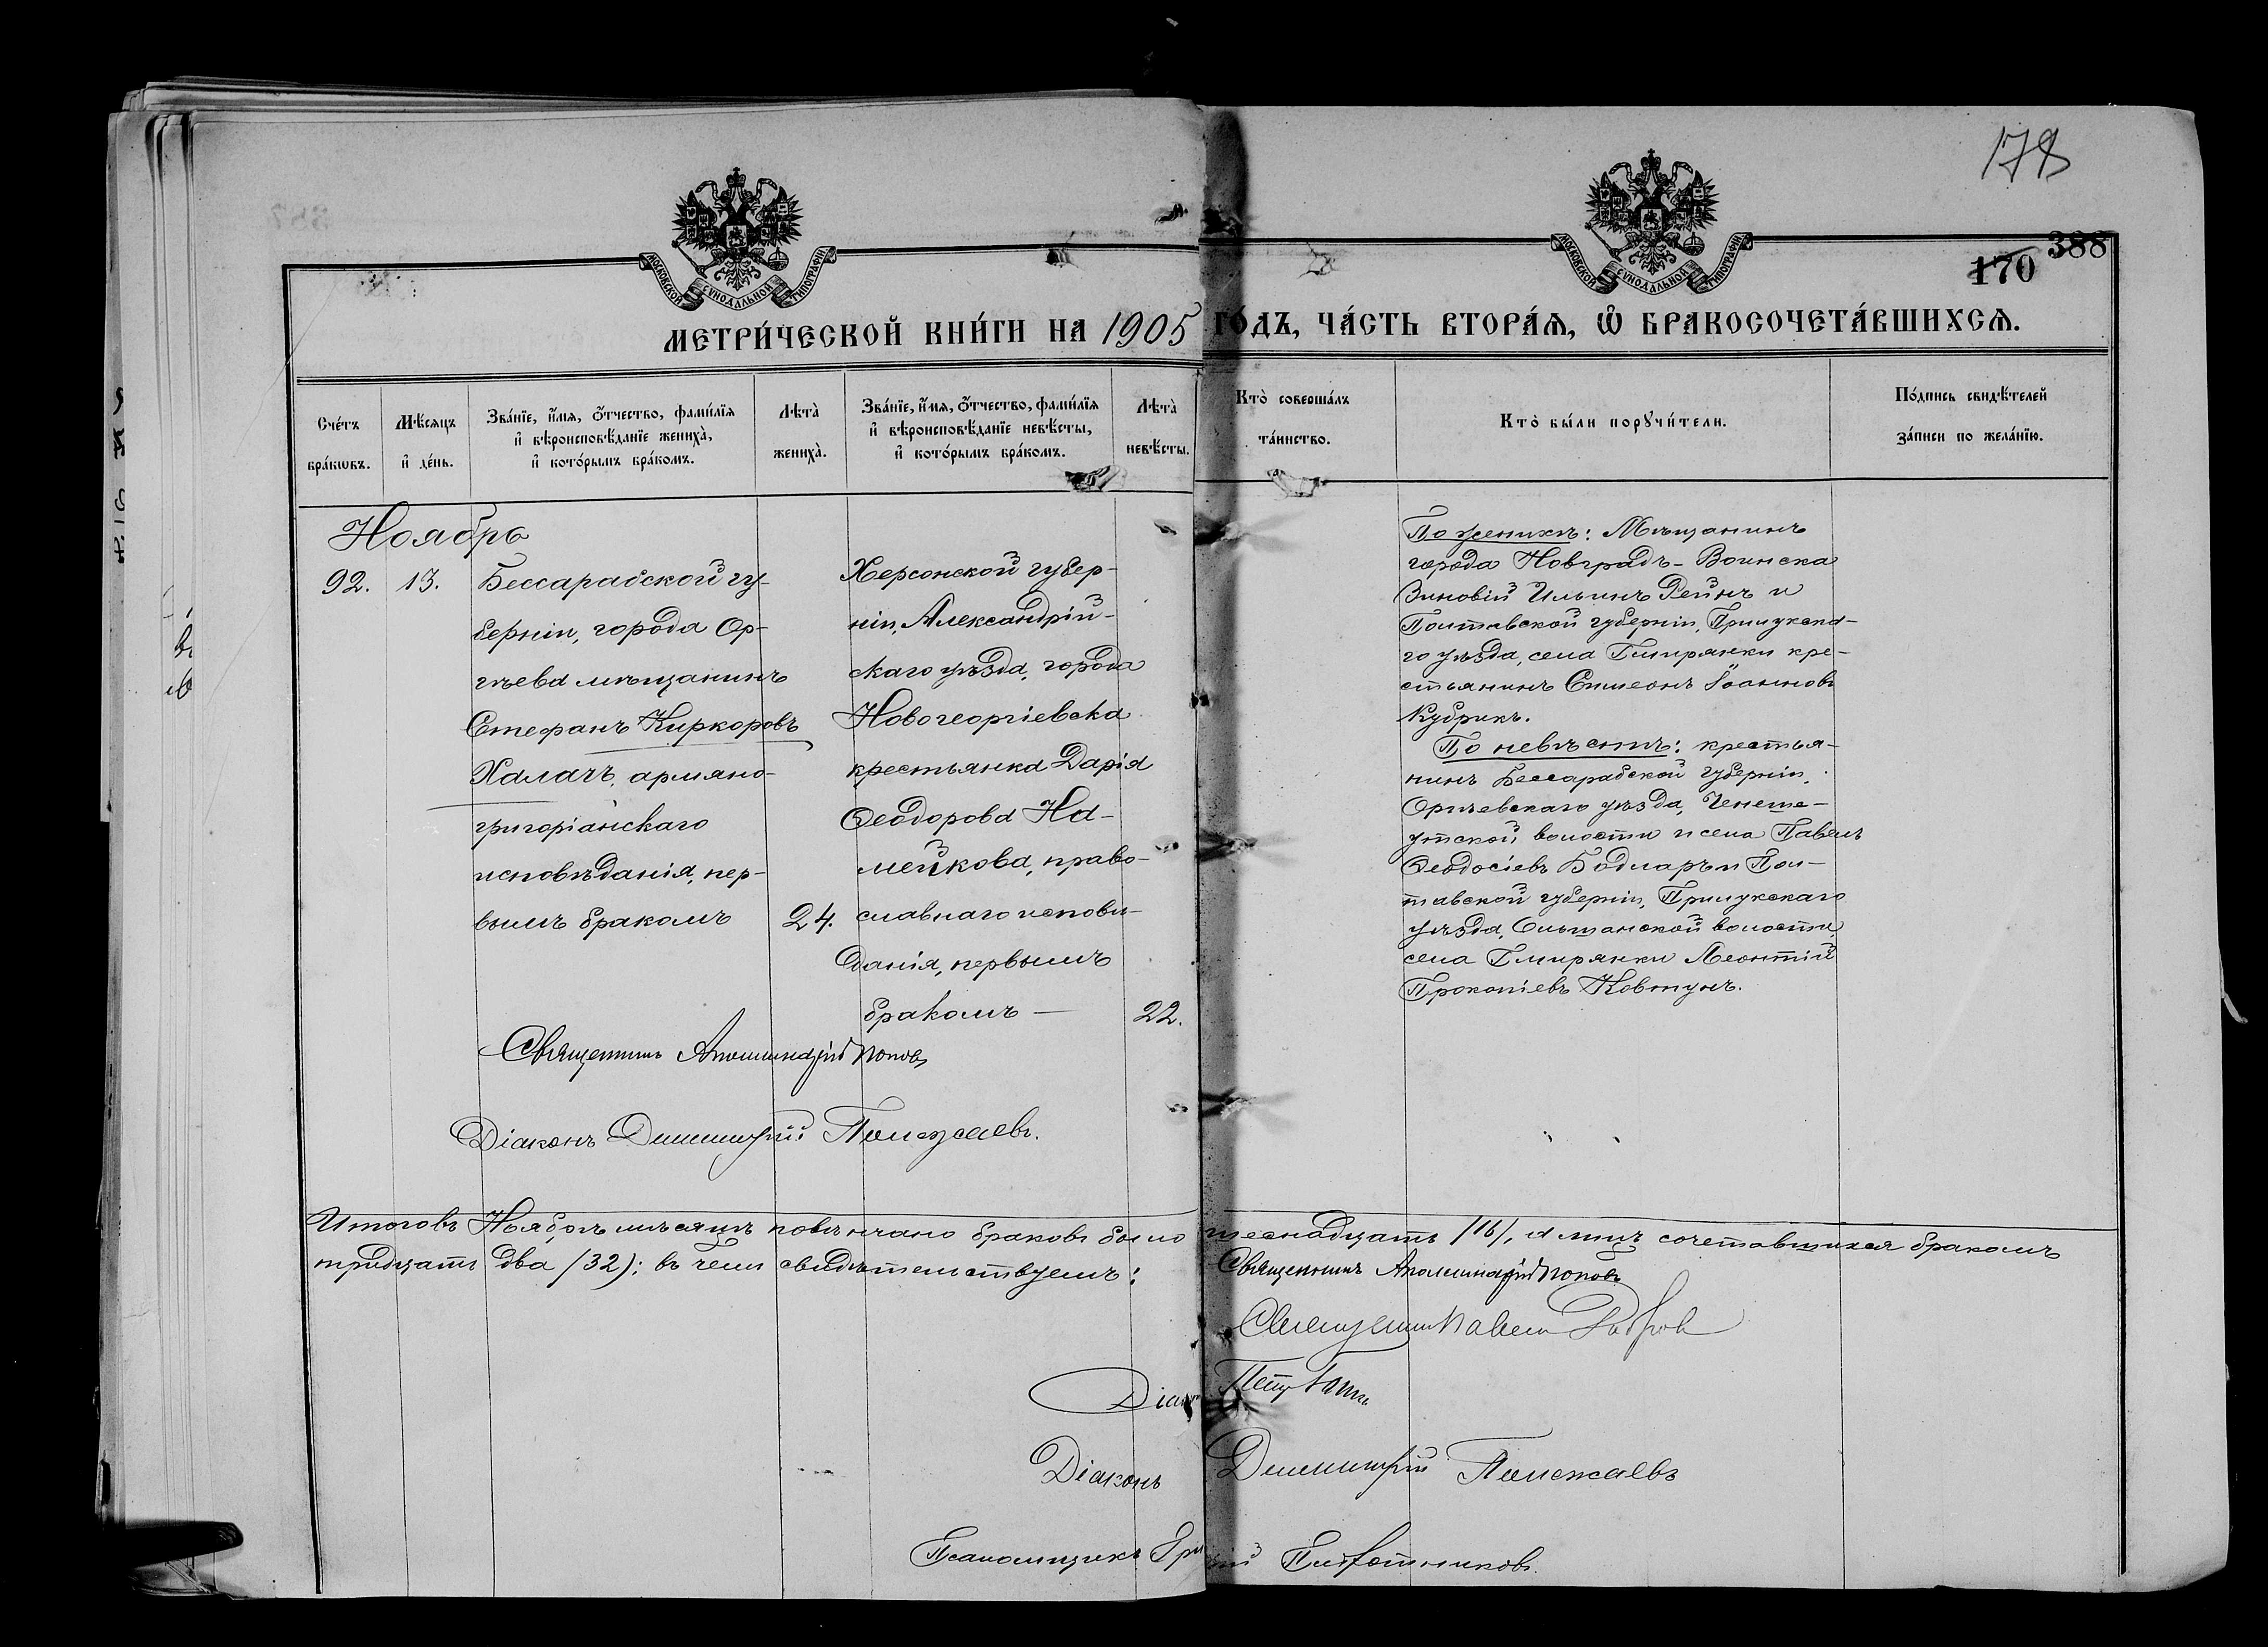 178
388
170
МОСКОВСКОЙ СѴНОДАЛЬНОЙ ТИПОГРАФІИ
МОСКОВСКОЙ СѴНОДАЛЬНОЙ ТИПОГРАФІИ
МЕТРИ́ЧЕСКОЙ КНИ́ГИ НА 1905 ГО́ДЪ, ЧА́СТЬ ВТОРА́Ѧ, Ѽ БРАКОСОЧЕТА́ВШИХСѦ.
Сче́тъ бра́кѡвъ.
Мѣ́сяцъ и҆ де́нь.
Зва́нїе, и҆́мѧ, ѻ҆́тчество, фами́лїѧ
и҆ вѣроисповѣ́данїе жениха̀,
и҆ кото́рымъ бра́комъ.
Лѣта̀ жениха̀.
Зва́нїе, и҆́мѧ, ѻ҆́тчество, фами́лїѧ
и҆ вѣроисповѣ́данїе невѣ́сты,
и҆ кото́рымъ бра́комъ.
Лѣта̀ невѣ́сты.
Кто̀ соверша́лъ та́инство.
Кто̀ бы́ли порꙋчи́тели.
По́дпись свидѣ́телей
за́писи по жела́нїю.
Ноябрь
92. 13.
Бессарабской гу-
берніи, города Ор-
гѣева мѣщанинъ
Стефанъ Киркоровъ
Халачъ, армяно-
григоріанскаго
исповѣданія, пер-
вымъ бракомъ
24.
Херсонской губер-
ніи, Александрій-
скаго уѣзда, города
Новогеоргіевска
крестьянка Дарія
Ѳеодорова На-
мейкова, право-
славнаго исповѣ-
данія, первымъ
бракомъ —
22.
По женихѣ: Мѣщанинъ
города Новградъ-Волынска
Зиновій Ильинъ Рейнъ и
Полтавской губерніи, Прилукска-
го уѣзда, села Гмирянки кре-
стьянинъ Симеонъ Іоанновъ
Кубрикъ.
По невѣстѣ: крестья-
нинъ Бессарабской губерніи,
Оргѣевскаго уѣзда,
волости и села Павелъ
Ѳеодосіевъ Бодларъ и Пол-
тавской губерніи, Прилукскаго
уѣзда, Ольшанской волости,
села Гмирянки Леонтій
Прокопіевъ Ковтунъ.
Священникъ Аполлинарій Поповъ
Діаконъ Димитрій Полежаевъ.
Итого въ Ноябрѣ мѣсяцѣ повѣнчано браковъ было шеснадцать /16/, а лицъ сочетавшихся бракомъ
тридцать два /32/; въ чемъ свидѣтельствуемъ:
Священникъ Аполлинарій Поповъ
Священникъ Павелъ
Діаконъ Петръ
Діаконъ Димитрій Полежаевъ
Псаломщикъ Плотниковъ.